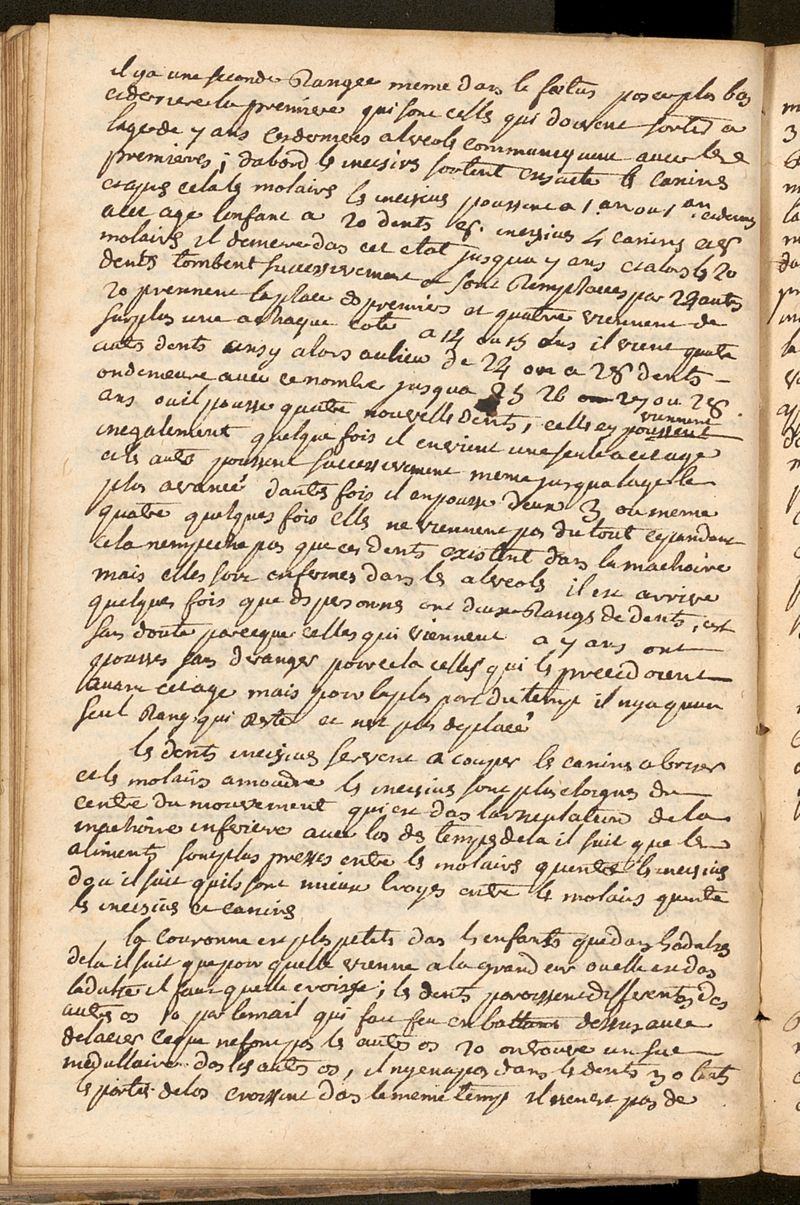 il ya une seconde Rangée meme dans le fœtus posée plus bas
et derriere la premiere qui sont celles qui doivent sortir a
lage de 7 ans ces dernieres alveols communiquent avec les
premieres; dabord les incisives sortent ensuite les canines
et apres cela les molaires les incisives poussent a 1 an ou 1 an et demi
a cet age lenfant a 20 dents 8 incisives 4 canines et 8
molaires il demeure dans cet etat jusqua 7 ans et alors les 20
dents tombent successivement et sont Remplacées par 24 autres
20 prennent la place des premiers et quatre viennent de
surplus une a chaque coté a 14 ou 15 ans il vient quatre
autres dents ainsy alors au lieu de 24 on a 28 dents
on demeure avec ce nombre jusqua 25 26 27 ou 28
ans ou il pousse quatre nouvelles dents, celles cy viennent
inegalement quelque fois il en vient une seule a cet age
et les autres poussent successivement meme jusqua lage le
plus avancé dautres fois il en pousse deux 3 ou meme
quatre quelques fois elles ne viennent pas du tout cependant
cela nempeche pas que ces dents existent dans la machoire
mais elles sont enfermes dans les alveols il est arrivé
quelques fois que des personnes ont deux Rangs de dents, cest
sans doute parceque celles qui viennent a 7 ans ont
poussés sans deranger pour cela celles qui les precedoient
avant cet age mais pour la plus part du temps il nya quun
seul Rang qui reste et nest pas deplacé
les dents incisives servent a couper les canines a briser
et les molaires a moudre les incisives sont plus eloignes du
centre du mouvement qui est dans larticulation de la
machoire inferieure avec los des temps de la il suit que les
aliments sont plus pressés entre les molaires quentre les incisives
dou il suit quils sont mieux broyes entre les molaires quentre
les incisives et canines
la Couronne est plus petite dans les enfants que dans les adultes
de la il suit que pour quelle vienne a la grandeur ou elle est dans
ladulte il faut quelle croisse; les dents paroissent differentes des
autres os 1o par lemail qui fait feu en battant dessus avec
de lacier ce que ne font pas les autres os 2o on trouve un suc
medullaire dans les autres os, il ny en a pas dans les dents 3o toutes
les parties de los croissent dans le meme temps il nen est pas de